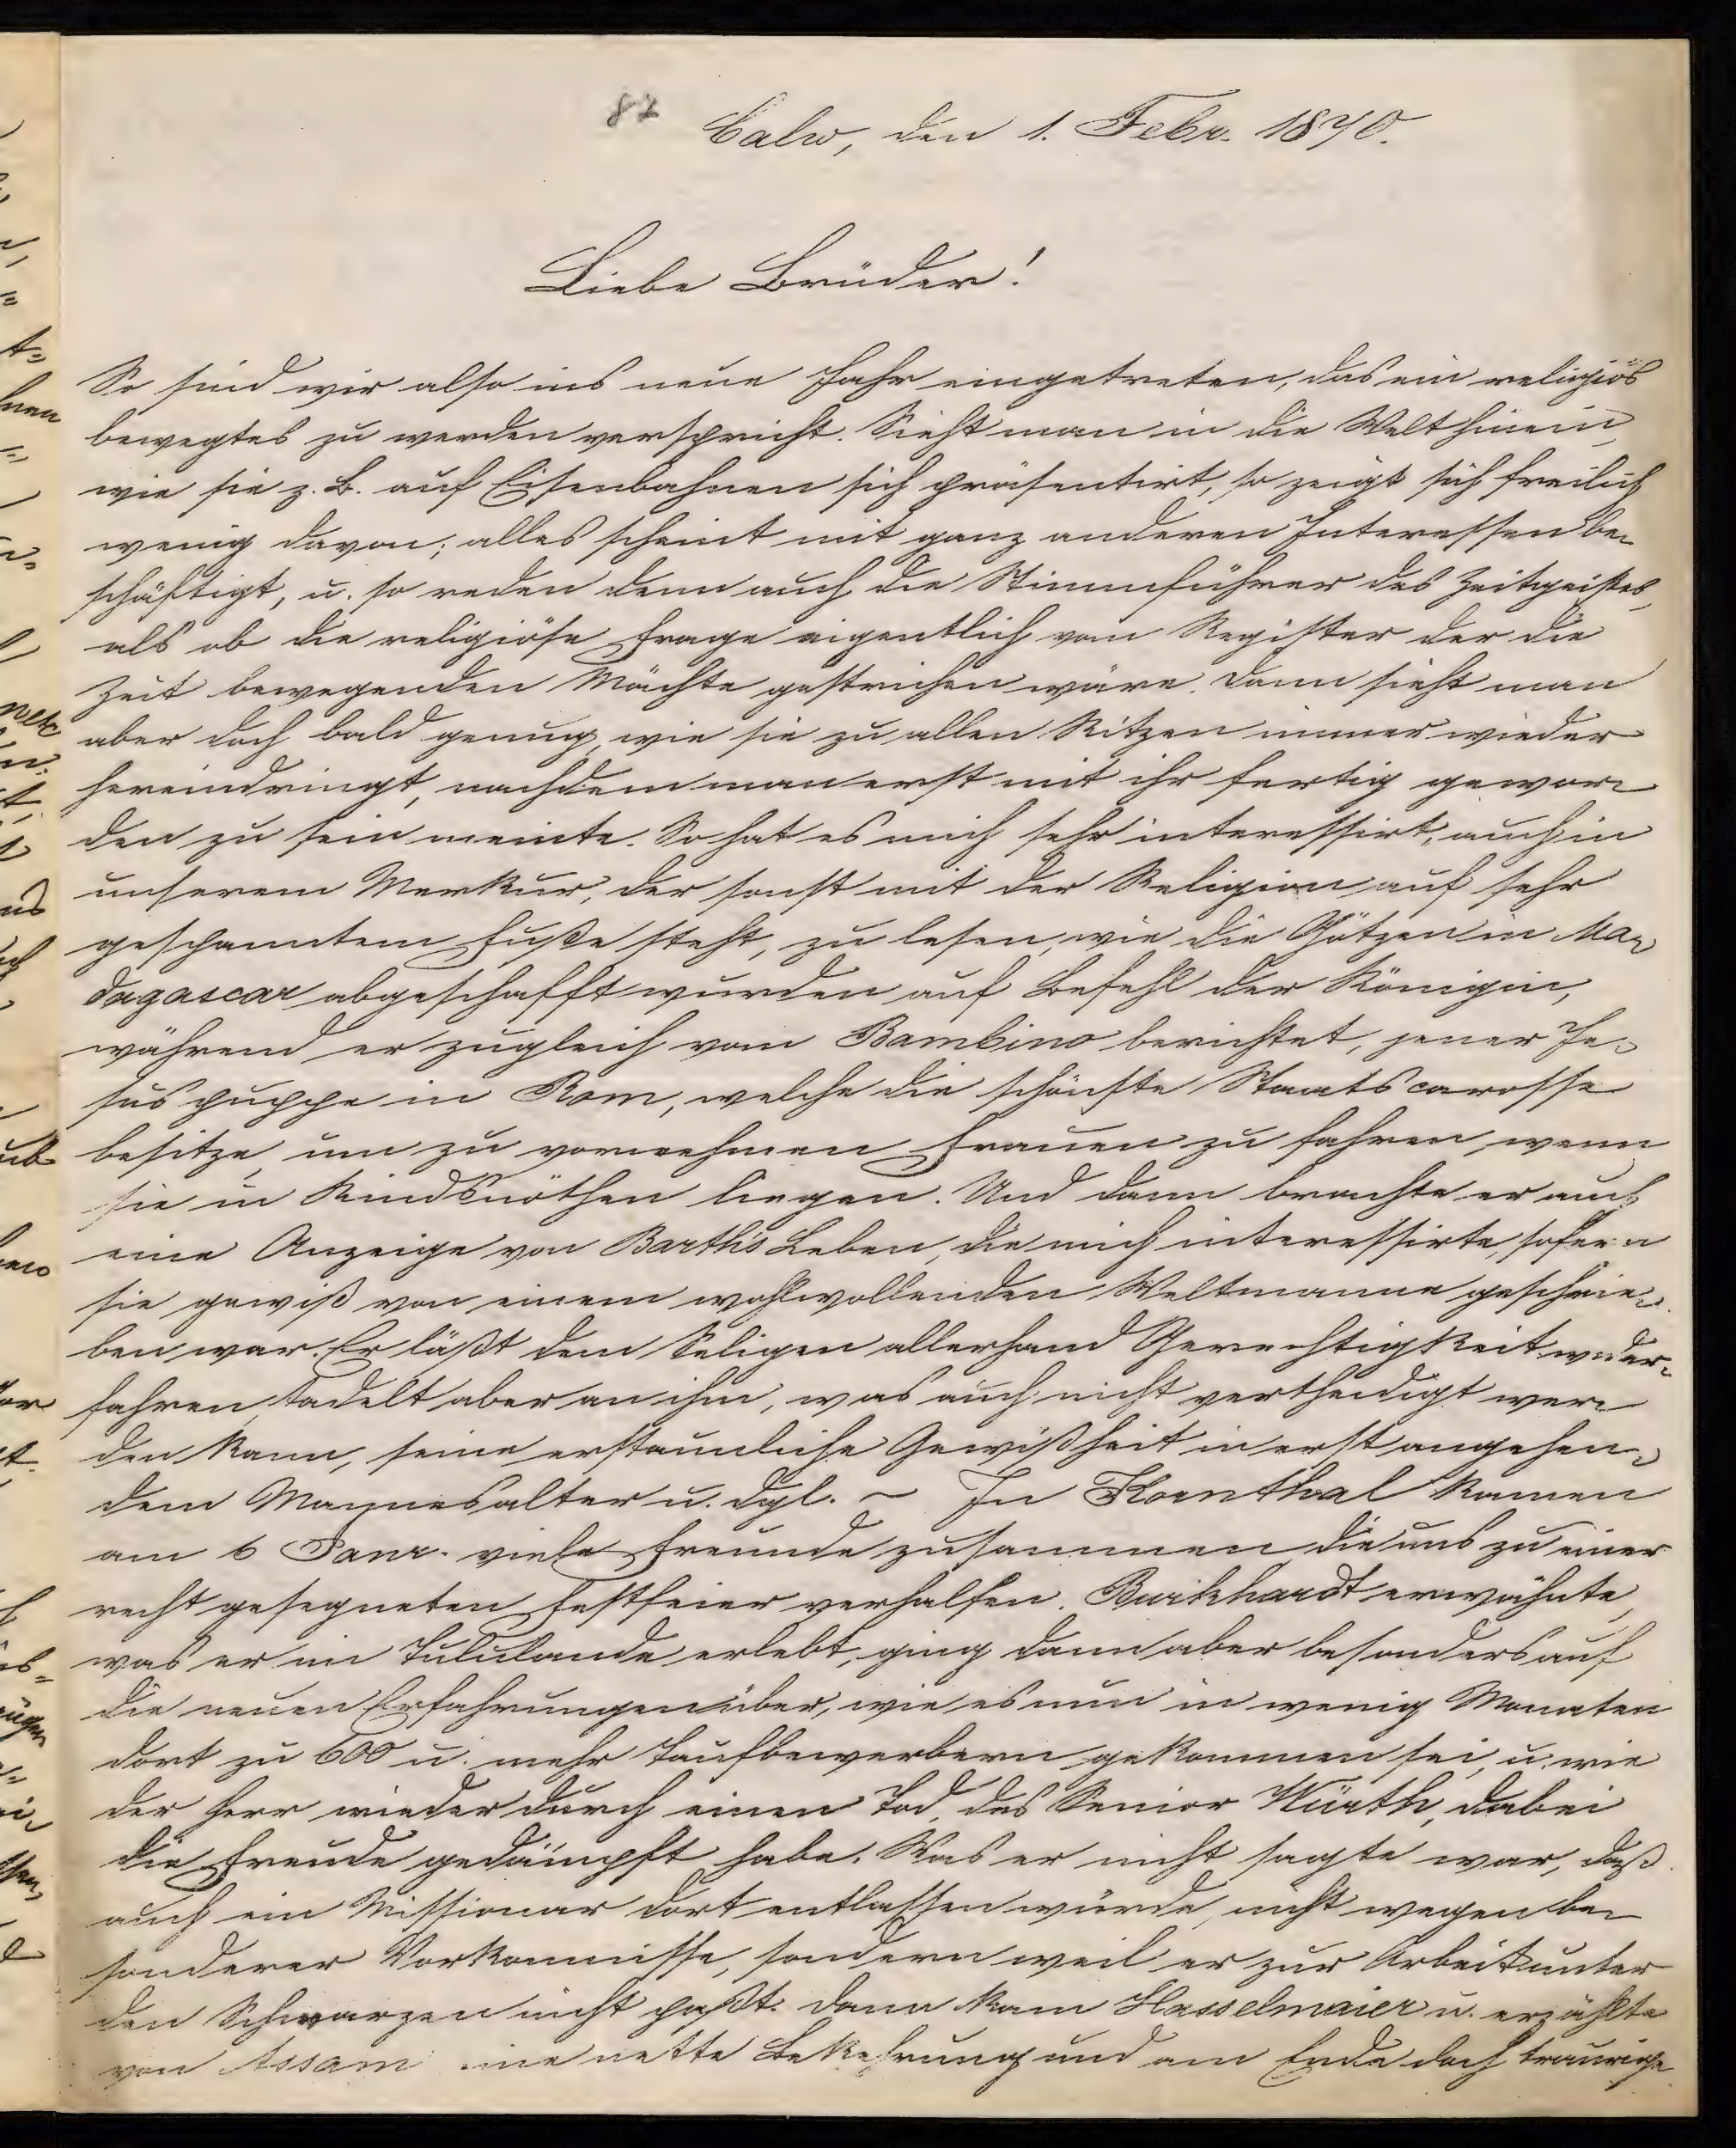 87
Calw, den 1. Febr. 1870.
Liebe Brüder!
So sind wir also ins neue Jahr eingetreten, das ein religiös
bewegtes zu werden verspricht. Sieht man in die Welt hinein,
wie sie z. B. auf Eisenbahnen sich präsentirt, so zeigt sich freilich
wenig davon; alles scheint mit ganz anderen Interessen be-
schäftigt, u. so reden denn auch die Stimmführer des Zeitgeistes,
als ob die religiöse Frage eigentlich vom Register der die
Zeit bewegenden Mächte gestrichen wäre. Dann sieht man
aber doch bald genug, wie sie zu allen Ritzen immer wieder
hereindringt, nachdem man erst mit ihr fertig gewor-
den zu sein meinte. So hat es mich sehr interessirt, auch in
unserem Merkur, der sonst mit der Religion auf sehr
gespanntem Fuße steht, zu lesen, wie die Götzen in Ma-
dagascar abgeschafft wurden auf Befehl der Königin,
während er zugleich vom Bambino berichtet, jener Je-
suspuppe in Rom, welche die schönste Staatscarosse
besitze, um zu vornehmen Frauen zu fahren, wenn
sie in Kindsnöthen liegen. Und dann brachte er auch
eine Anzeige von Barth's Leben, die mich interessirte, sofern
sie gewiß von einem wohlwollenden Weltmanne geschrie-
ben war. Er läßt dem Seligen allerhand Gerechtigkeit wider-
fahren, tadelt aber an ihm, was auch nicht vertheidigt wer-
den kann, seine erstaunliche Gewißheit in erst angehen-
dem Mannesalter u. dgl. – In Kornthal kamen
am 6 Janr. viele Freunde zusammen die uns zu einer
recht gesegneten Festfeier verhalfen. Burkhardt erwähnte,
was er im Tululande erlebt, ging dann aber besonders auf
die neuen Erfahrungen über, wie es nun in wenig Monaten
dort zu 600 u. mehr Taufbewerbern gekommen sei, u. wie
der Herr wieder durch einen Tod, des Senior Würth, dabei
die Freude gedämpft habe. Was er nicht sagte war, daß
auch ein Missionar dort entlassen würde, nicht wegen be-
sonderer Vorkommnisse, sondern weil er zur Arbeit unter
den Schwarzen nicht paßt. Dann kam Hasselmaier u. erzählte
von Assam eine nette Bekehrung und am Ende doch traurige